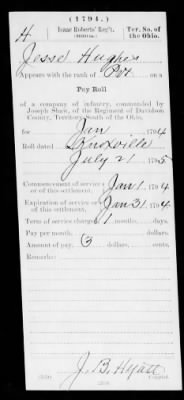 (1794.)
H Isaac Roberts' Reg't. Ter. So. of the Ohio.
Jesse Hughes
Appears with the rank of Pvt. on a
Pay Roll
of a company of infantry, commanded by
Joseph Shaw, of the Regiment of Davidson
County, Territory South of the Ohio,
for Jan , 1794
Roll dated Knoxville
July 21 , 1795
Commencement of service or of this settlement. Jan 1 , 1794
Expiration of service or of this settlement. Jan 31 , 1794
Term of service charged 1 months, days.
Pay per month, dollars, cents.
Amount of pay, 3 dollars, cents.
Remarks:
J. B. Hyatt
Copyist.